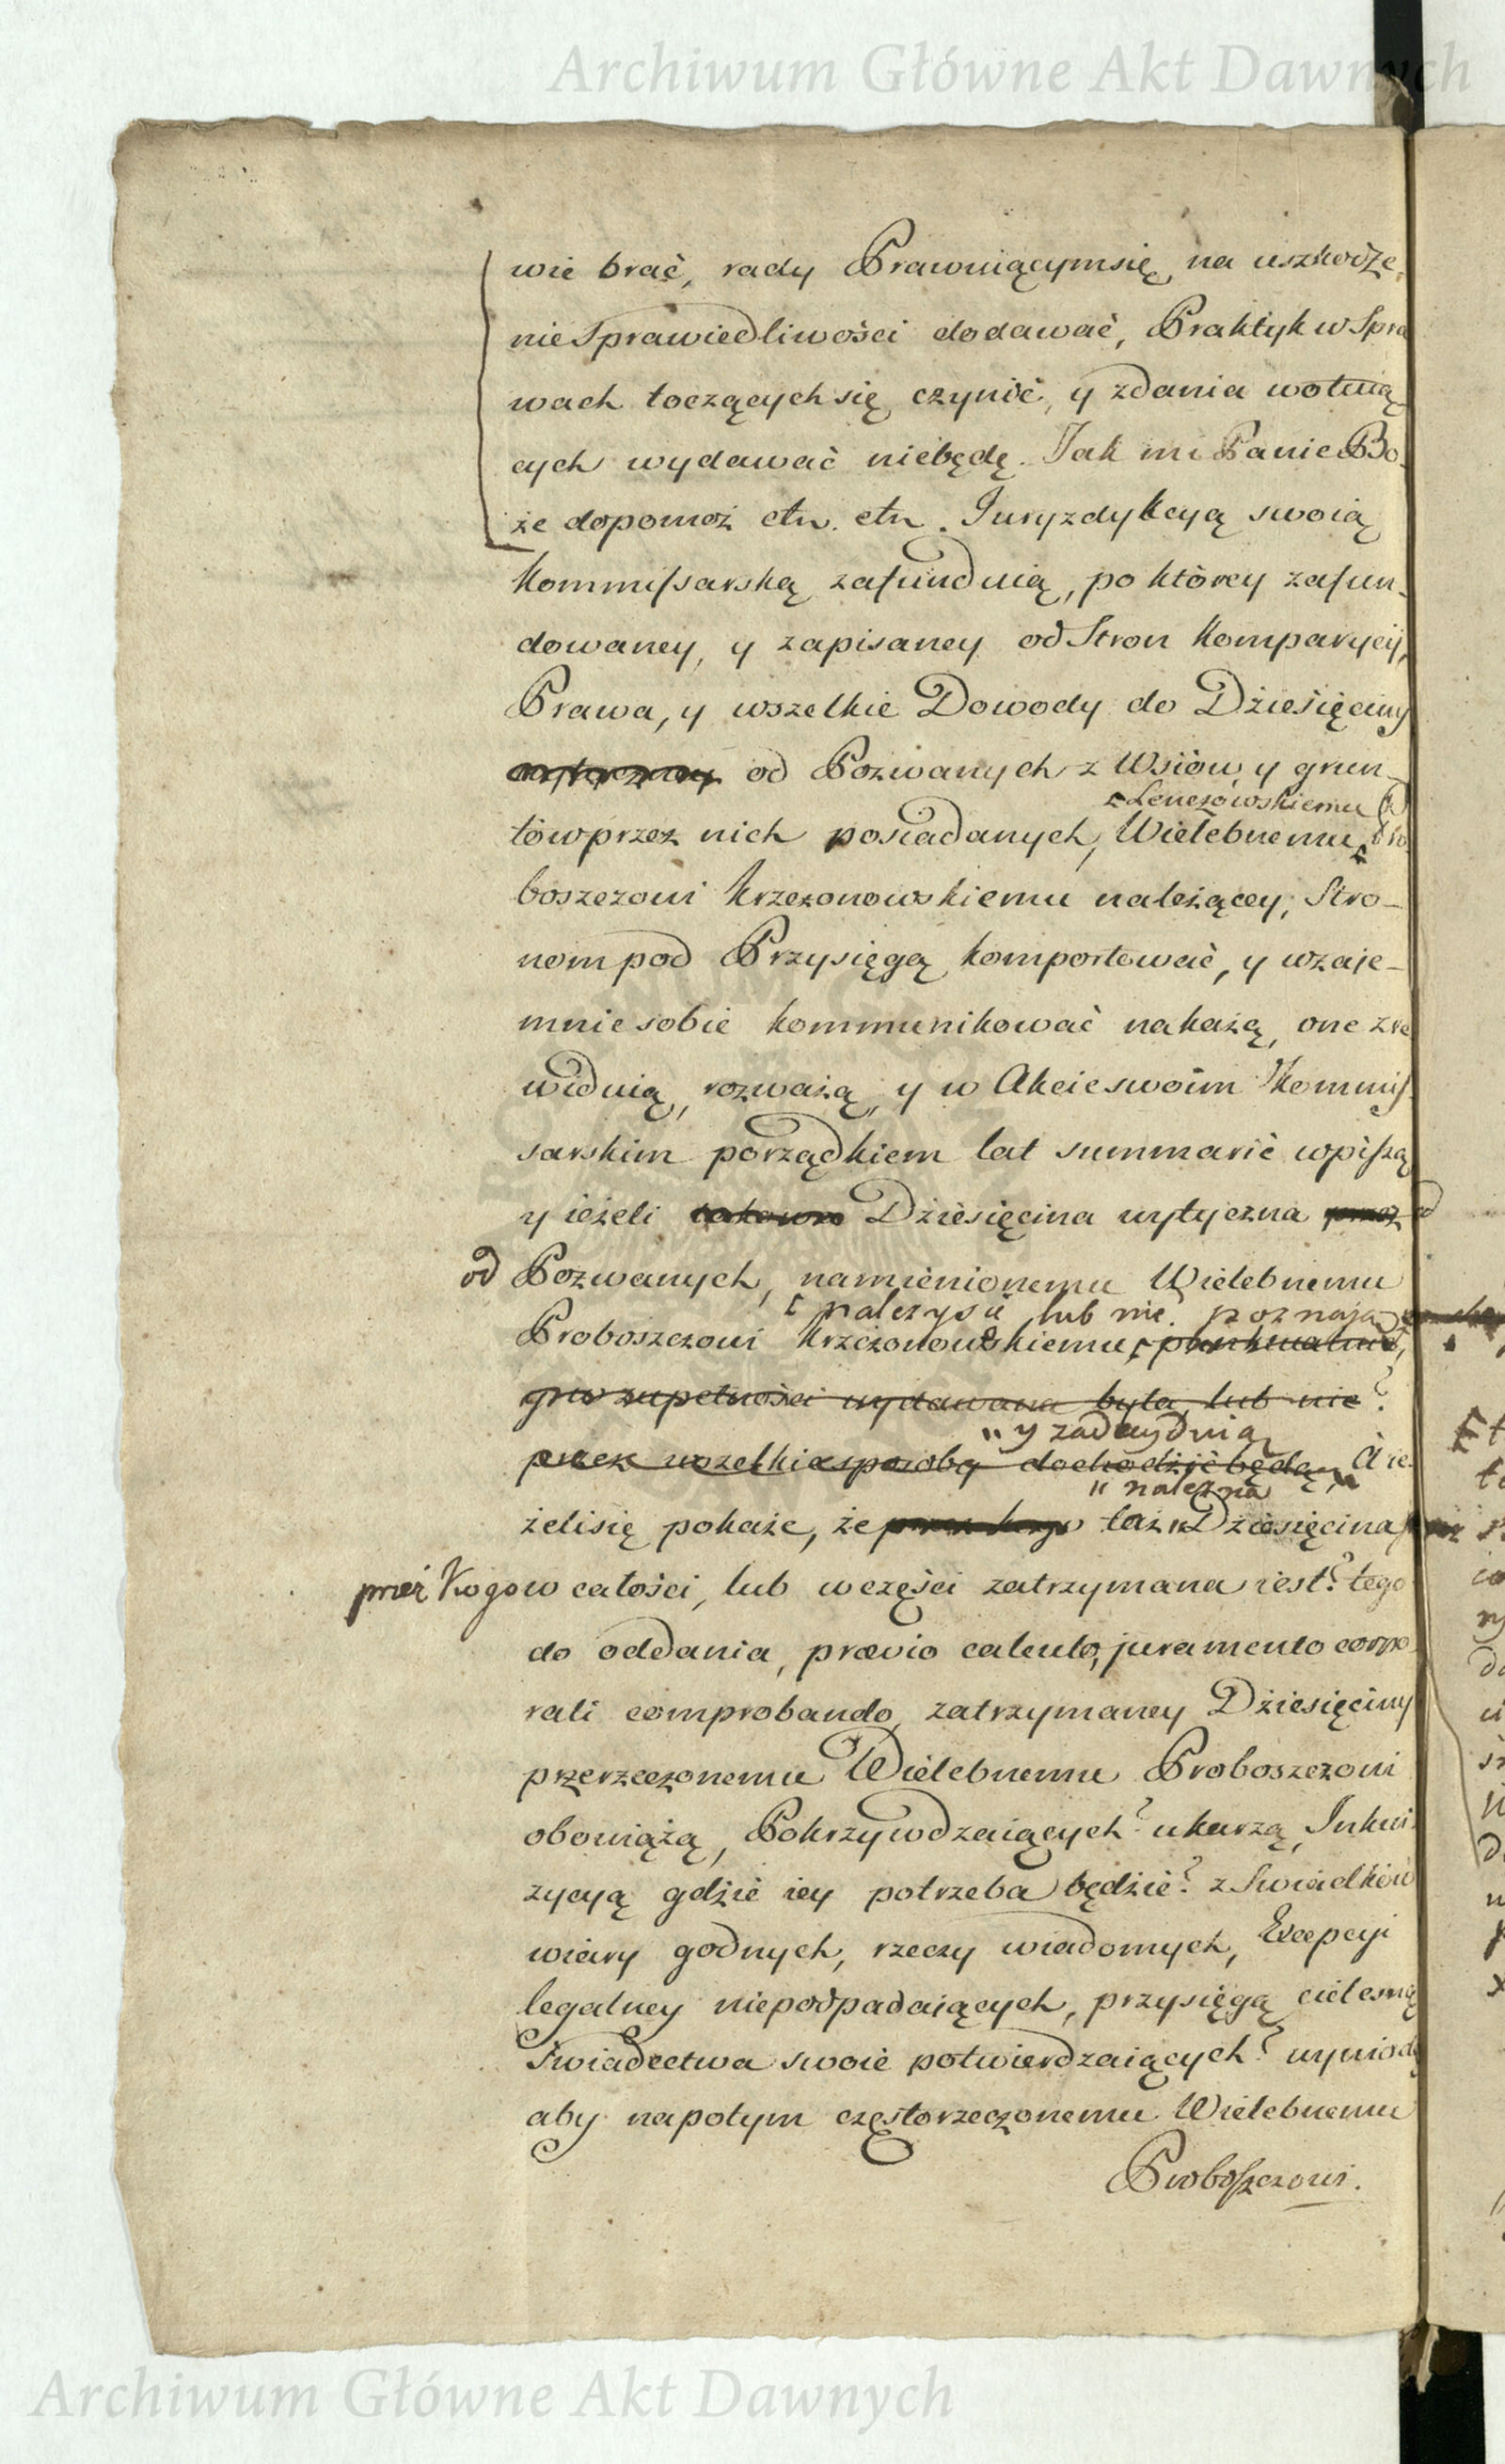 Archiwum Główne Akt Dawnych
wie brać, rady Prawuiącymsię na uszkodze-
nie Sprawiedliwości dodawać, Praktyk w Spra
wach toczących się czynić, y zdania wotuią-
cych wydawać niebędę. Jak mi Panie Bo-
że dopomoż etn. etn. Juryzdykcyą swoią
Kommissarską zafunduią, po którey zafun-
dowaney, y zapisaney od Stron Komparycyi,
Prawa, y wszelkie Dowody do Dziesięciny
od Pozwanych z Wsiów y grun-
Lenczowskiemu
tów przez nich posiadanych, Wielebnemu Pro-
boszczowi Krzczonowskiemu należącey, Stro-
nom pod Przysięgą komportować, y wzaje-
mnie sobie kommunikować nakażą, one zre
widuią, rozważą, y w Akcie swoim Kommis-
sarskim porządkiem lat summarie wpiszą
y ieżeli takowa Dziesięcina wytyczna przez
od Pozwanych, namienionemu Wielebnemu
należy się lub nie? poznają
Proboszczowi Krzczonowskiemu, punktualnie,
y w zupełności wydawana była, lub nie?
" y zadecyduią
przez wszelkie sposoby dochodzić będą, A ie-
" należna
żeli się pokaże, że przez kogo taż " Dziesięcina
przez Kogo w całości, lub w części zatrzymana iest? tego
do oddania, prævio calculo, juramento corpo-
rali comprobando, zatrzymaney Dziesięciny
przerzeczonemu Wielebnemu Proboszczowi
obowiążą, Pokrzywdzaiących? ukarzą, Inkwi-
zycyą gdzie iey potrzeba będzie? z Swiadków
wiary godnych, rzeczy wiadomych, Excepcyi
legalney niepodpadaiących, przysięgą cielesną
Swiadectwa swoie potwierdzaiących? wyniodą
aby napotym częstorzeczonemu Wielebnemu
Proboszczowi.
Archiwum Główne Akt Dawnych